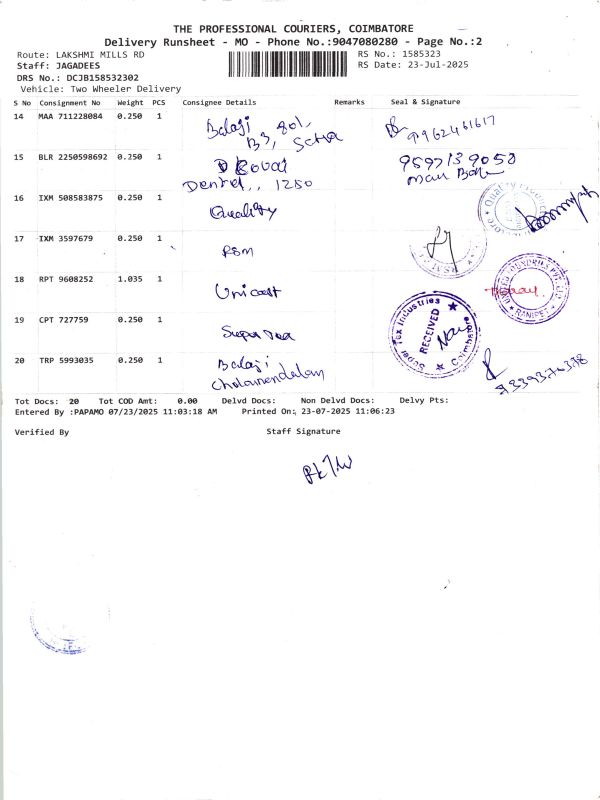 THE PROFESSIONAL COURIERS, COIMBATORE
Delivery Runsheet - MO - Phone No.:9047080280 - Page No.:2
Route: LAKSHMI MILLS RD RS No.: 1585323
Staff: JAGADEES RS Date: 23-Jul-2025
DRS No.: DCJB158532302
Vehicle: Two Wheeler Delivery
S No Consignment No Weight PCS Consignee Details Remarks Seal & Signature
14 MAA 711228084 0.250 1 Balaji 9962461617
15 BLR 2250598692 0.250 1
Dental,, 1250
16 IXM 508583875 0.250 1 Quality
17 IXM 3597679 0.250 1 RSM
18 RPT 9608252 1.035 1 Unicast
RANIPET
19 CPT 727759 0.250 1 Super Tex
Super Tex Industries
RECEIVED
Coimbatore
20 TRP 5993035 0.250 1 Balaji
Cholamandalam
Tot Docs: 20 Tot COD Amt: 0.00 Delvd Docs: Non Delvd Docs: Delvy Pts:
Entered By :PAPAMO 07/23/2025 11:03:18 AM Printed On: 23-07-2025 11:06:23
Verified By Staff Signature